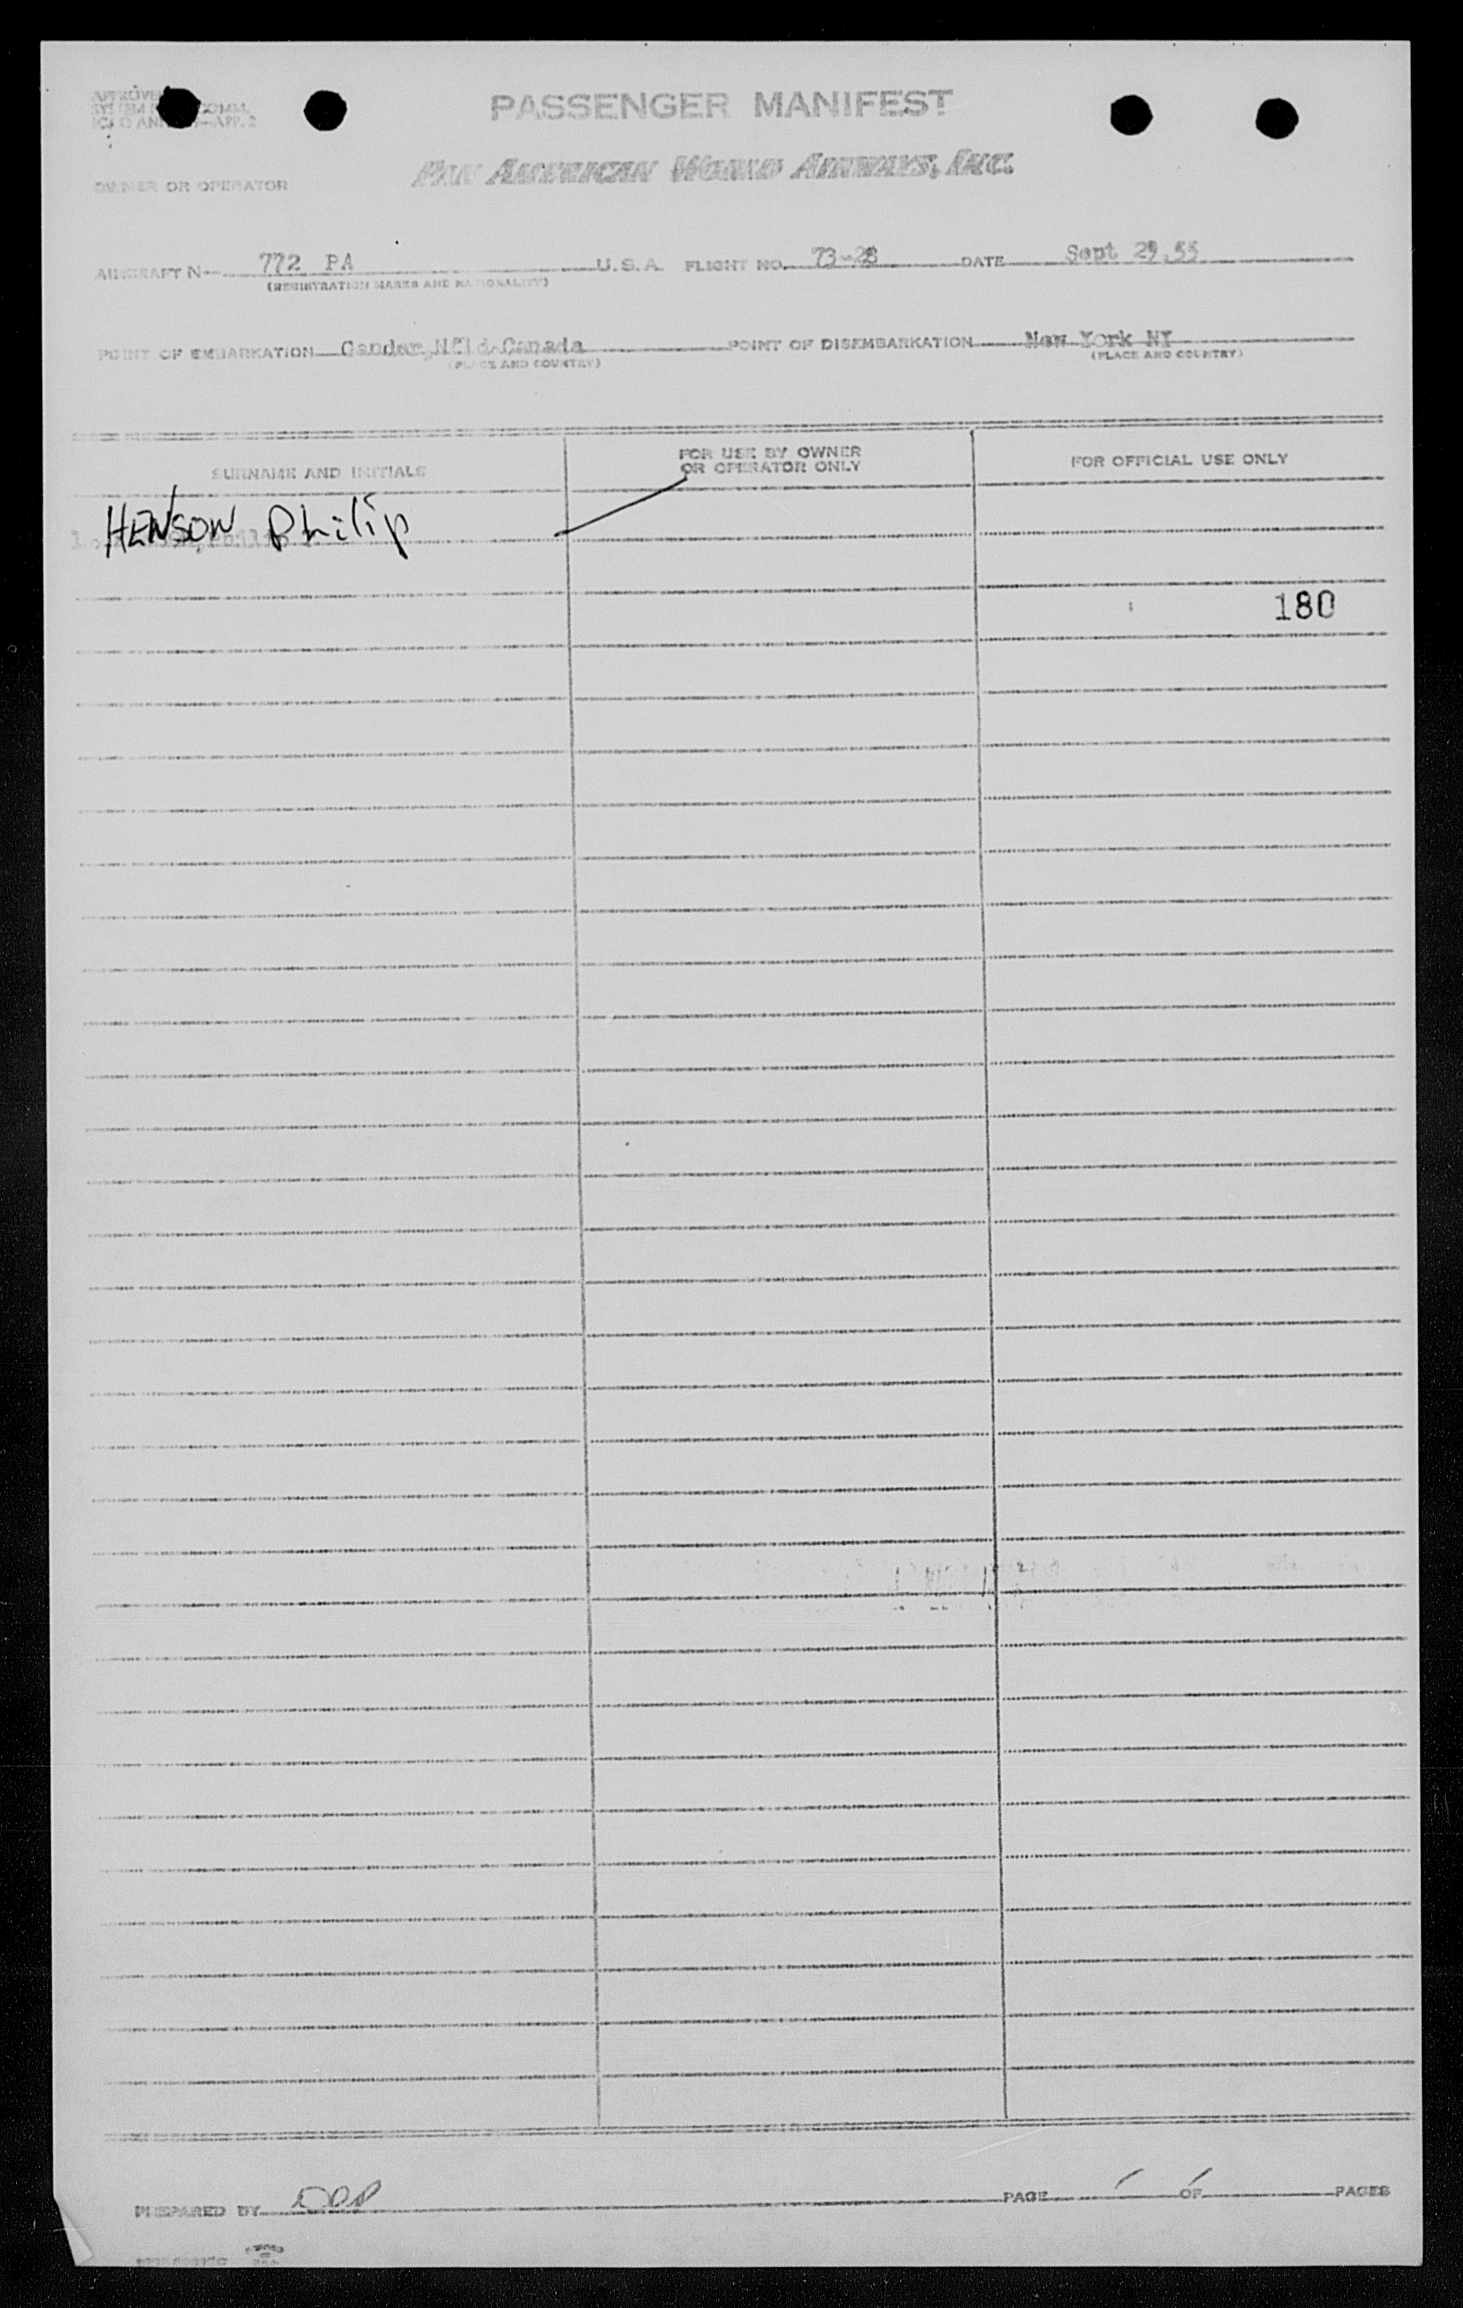 PASSENGER MANIFEST
OWNER OR OPERATOR PAN AMERICAN WORLD AIRWAYS, INC.
AIRCRAFT N 772 PA U.S.A. FLIGHT NO. 73-28 DATE Sept 29,55
(REGISTRATION MARKS AND NATIONALITY)
POINT OF EMBARKATION Gander,Nfld.Canada POINT OF DISEMBARKATION New York NY
(PLACE AND COUNTRY) (PLACE AND COUNTRY)
SURNAME AND INITIALS FOR USE BY OWNER OR OPERATOR ONLY FOR OFFICIAL USE ONLY
HENSON Philip
180
PREPARED BY PAGE 1 OF 1 PAGES